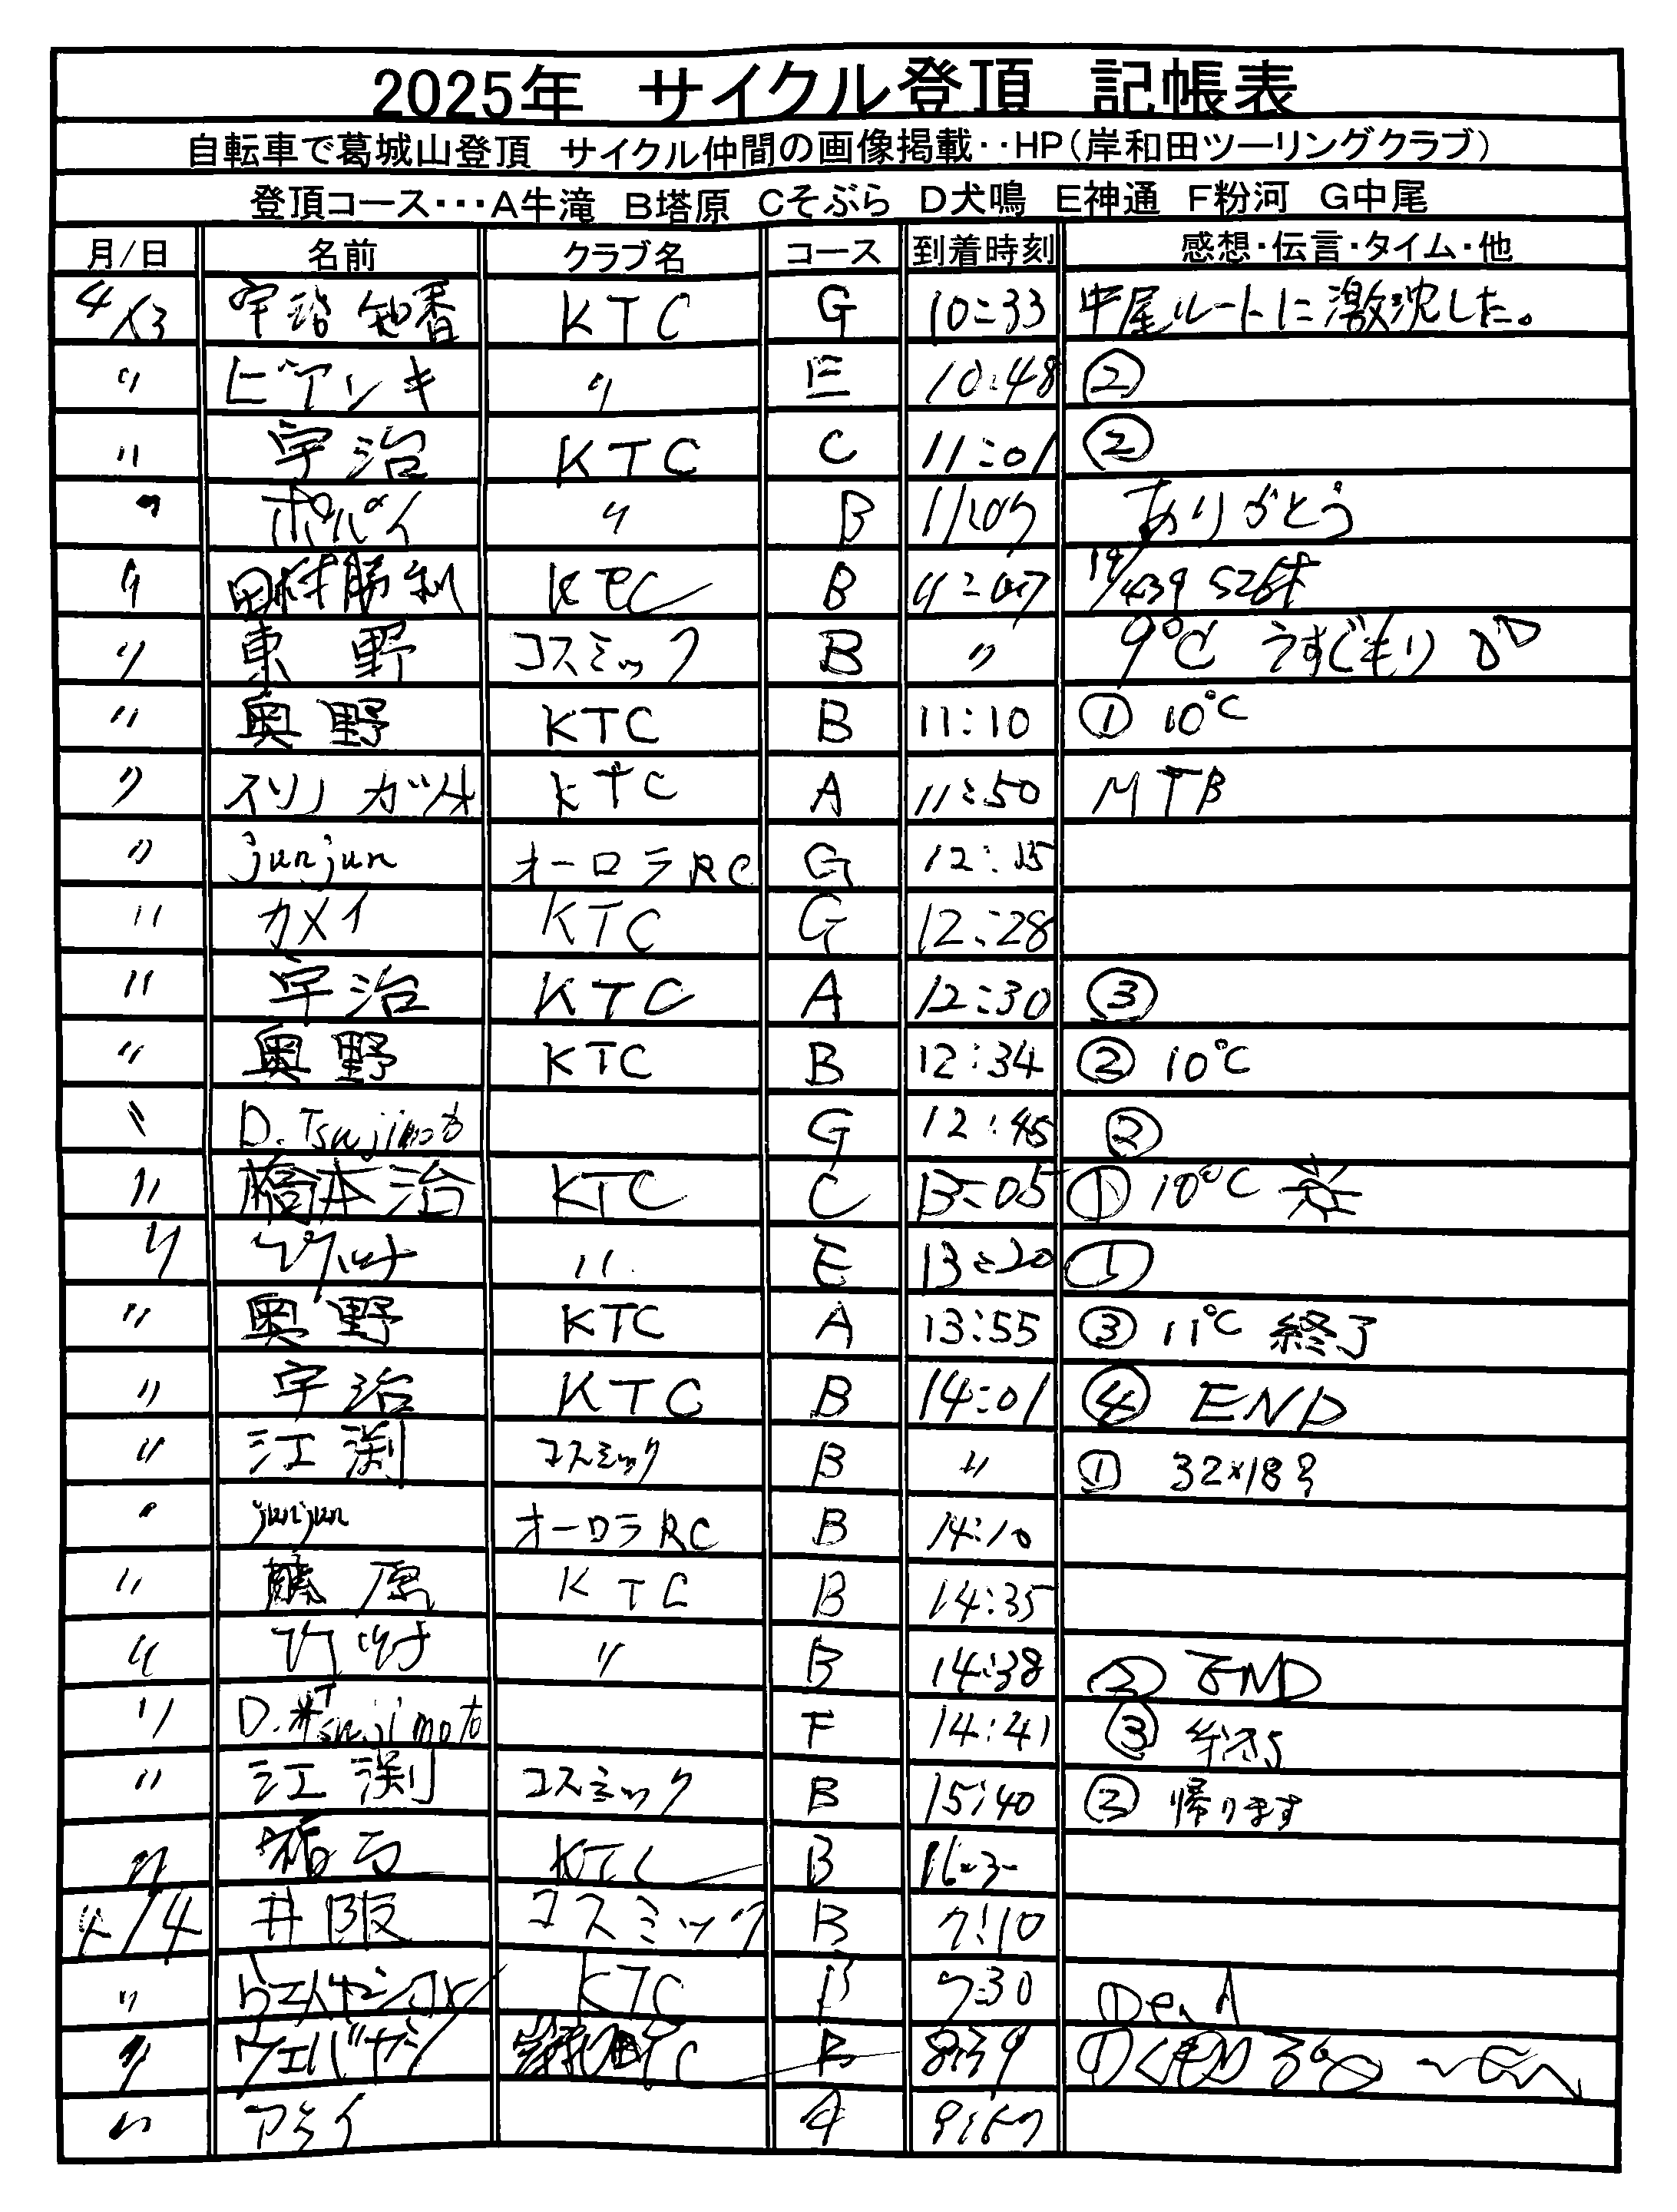 2025年 サイクル登頂 記帳表
自転車で葛城山登頂 サイクル仲間の画像掲載‥HP(岸和田ツーリングクラブ)
登頂コース･･･A牛滝 B塔原 Cそぶら D犬鳴 E神通 F粉河 G中尾
月/日 名前 クラブ名 コース 到着時刻 感想・伝言・タイム・他
4/13 知香 KTC G 10:33 中尾ルートに激沈した。
〃 ビアンキ 〃 E 10:48 ②
〃 宇治 KTC C 11:01 ②
〃 ポパイ 〃 B 11:07 ありがとう
〃 田村勝利 KTC B 11:07 19/439 526休
〃 東野 コスミック B 〃 9℃ うすぐもり
〃 奥野 KTC B 11:10 ① 10℃
〃 KTC A 11:50 MTB
〃 junjun オーロラRC G 12:15
〃 カメイ KTC G 12:28
〃 宇治 KTC A 12:30 ③
〃 奥野 KTC B 12:34 ② 10℃
〃 D.Tsujimoto G 12:45 ②
〃 橋本治 KTC C 13:05 ① 10℃
〃 〃 E 13:20 ①
〃 奥野 KTC A 13:55 ③ 11℃ 終了
〃 宇治 KTC B 14:01 ④ END
〃 江渕 コスミック B 〃 ① 32×18
〃 junjun オーロラRC B 14:10
〃 藤原 KTC B 14:35
〃 〃 B 14:38 ② END
〃 D.Tsujimoto F 14:41 ③
〃 江渕 コスミック B 15:40 ② 帰ります
〃 KTC B
4/4 井阪 コスミック B 7:10
〃 KTC B 7:30
〃 B 8:39 ①
〃 A